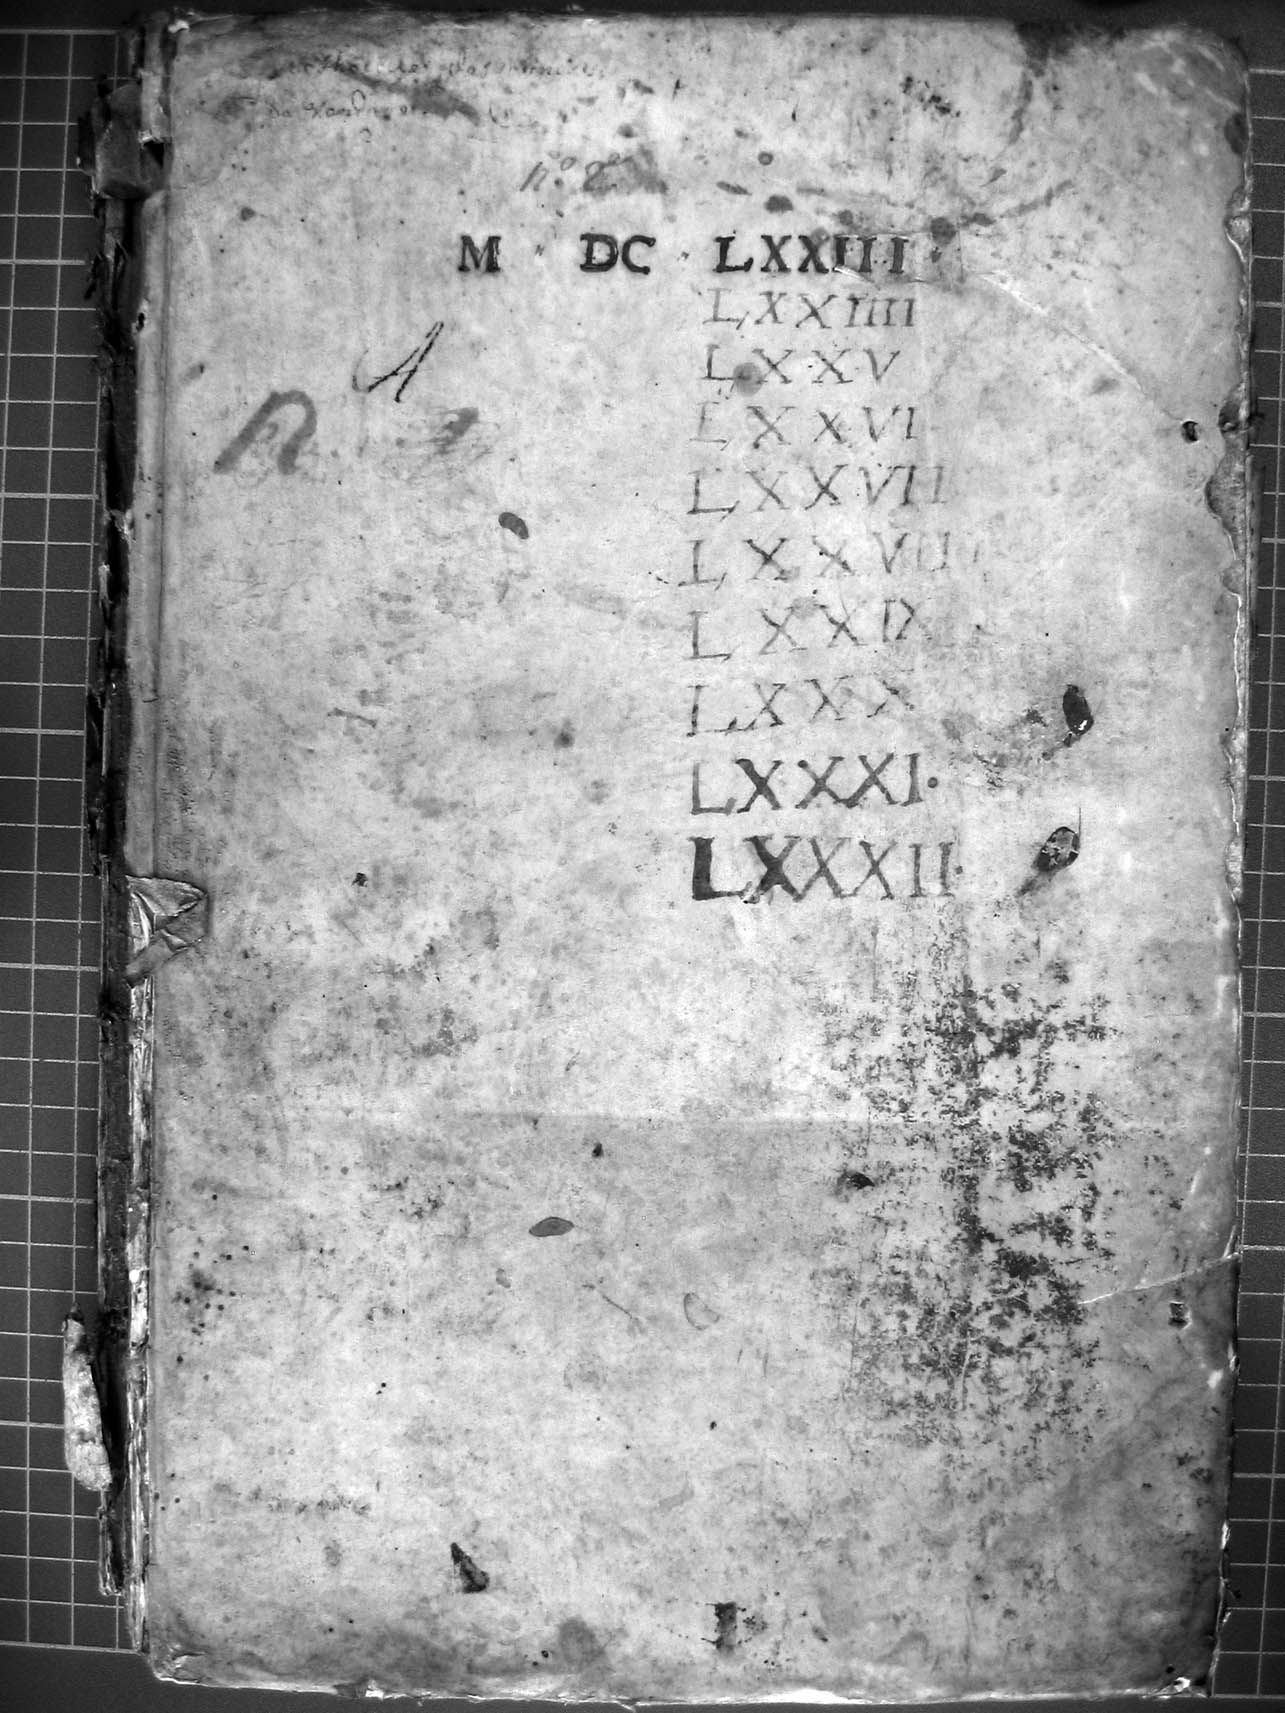 nº 2º
M · DC · LXXIII
LXXIIII
LXXV
LXXVI
LXXVII
LXXVIII
LXXIX
LXXX
LXXXI·
LXXXII·
A